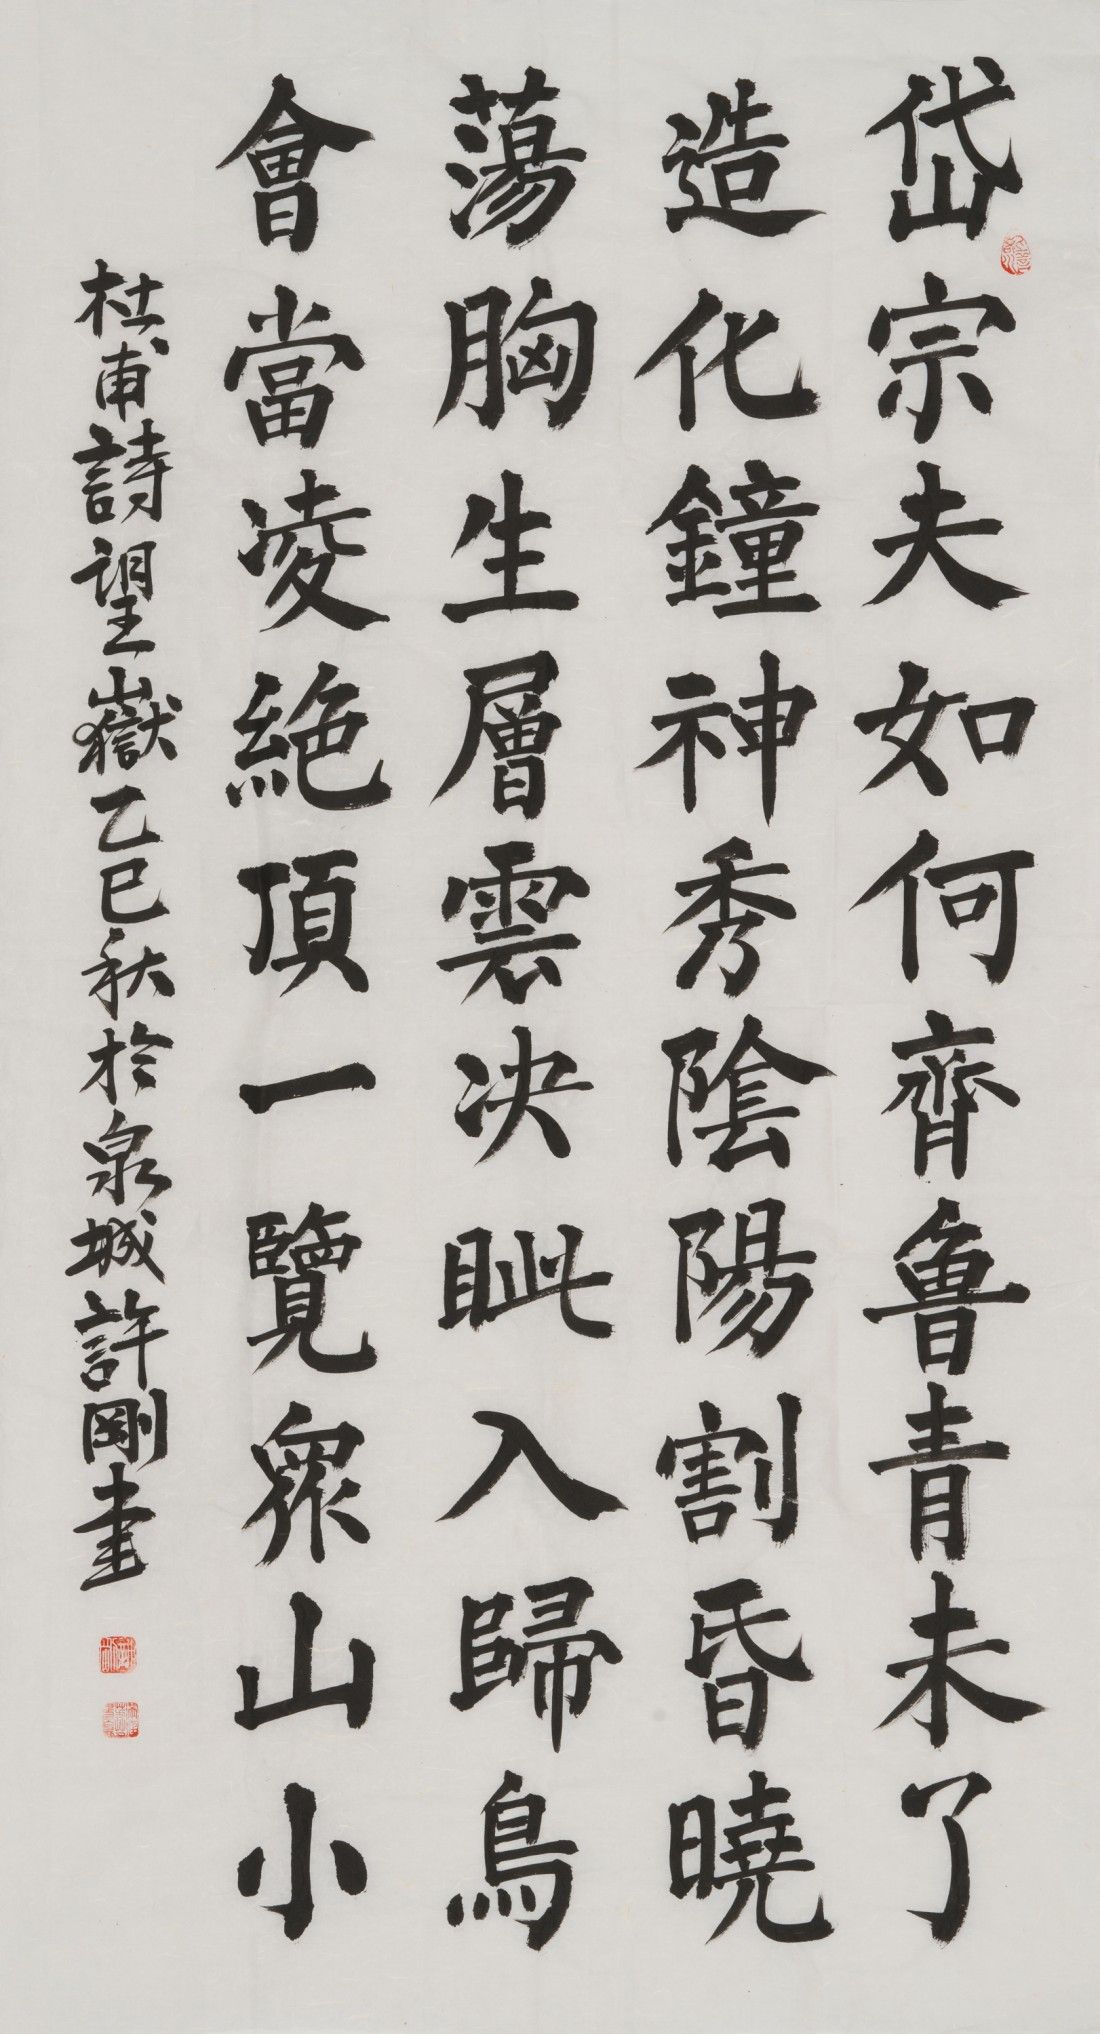 岱宗夫如何齊魯青未了
造化鐘神秀陰陽割昏曉
蕩胸生層雲決眦入歸鳥
會當凌絕頂一覽眾山小
杜甫詩望嶽乙巳秋於泉城許剛書